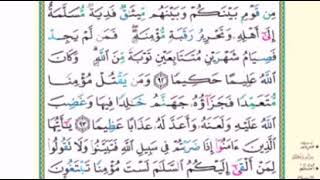 مِن قَوْمٍ بَيْنَكُمْ وَبَيْنَهُم مِّيثَٰقٌ فَدِيَةٌ مُّسَلَّمَةٌ
إِلَىٰٓ أَهْلِهِۦ وَتَحْرِيرُ رَقَبَةٍ مُّؤْمِنَةٍ فَمَن لَّمْ يَجِدْ
فَصِيَامُ شَهْرَيْنِ مُتَتَابِعَيْنِ تَوْبَةً مِّنَ ٱللَّهِ وَكَانَ
ٱللَّهُ عَلِيمًا حَكِيمًا ٩٢ وَمَن يَقْتُلْ مُؤْمِنًا
مُّتَعَمِّدًا فَجَزَآؤُهُۥ جَهَنَّمُ خَٰلِدًا فِيهَا وَغَضِبَ
ٱللَّهُ عَلَيْهِ وَلَعَنَهُۥ وَأَعَدَّ لَهُۥ عَذَابًا عَظِيمًا ٩٣ يَٰٓأَيُّهَا
ٱلَّذِينَ ءَامَنُوٓا۟ إِذَا ضَرَبْتُمْ فِى سَبِيلِ ٱللَّهِ فَتَبَيَّنُوا۟ وَلَا تَقُولُوا۟
لِمَنْ أَلْقَىٰٓ إِلَيْكُمُ ٱلسَّلَٰمَ لَسْتَ مُؤْمِنًا تَبْتَغُونَ